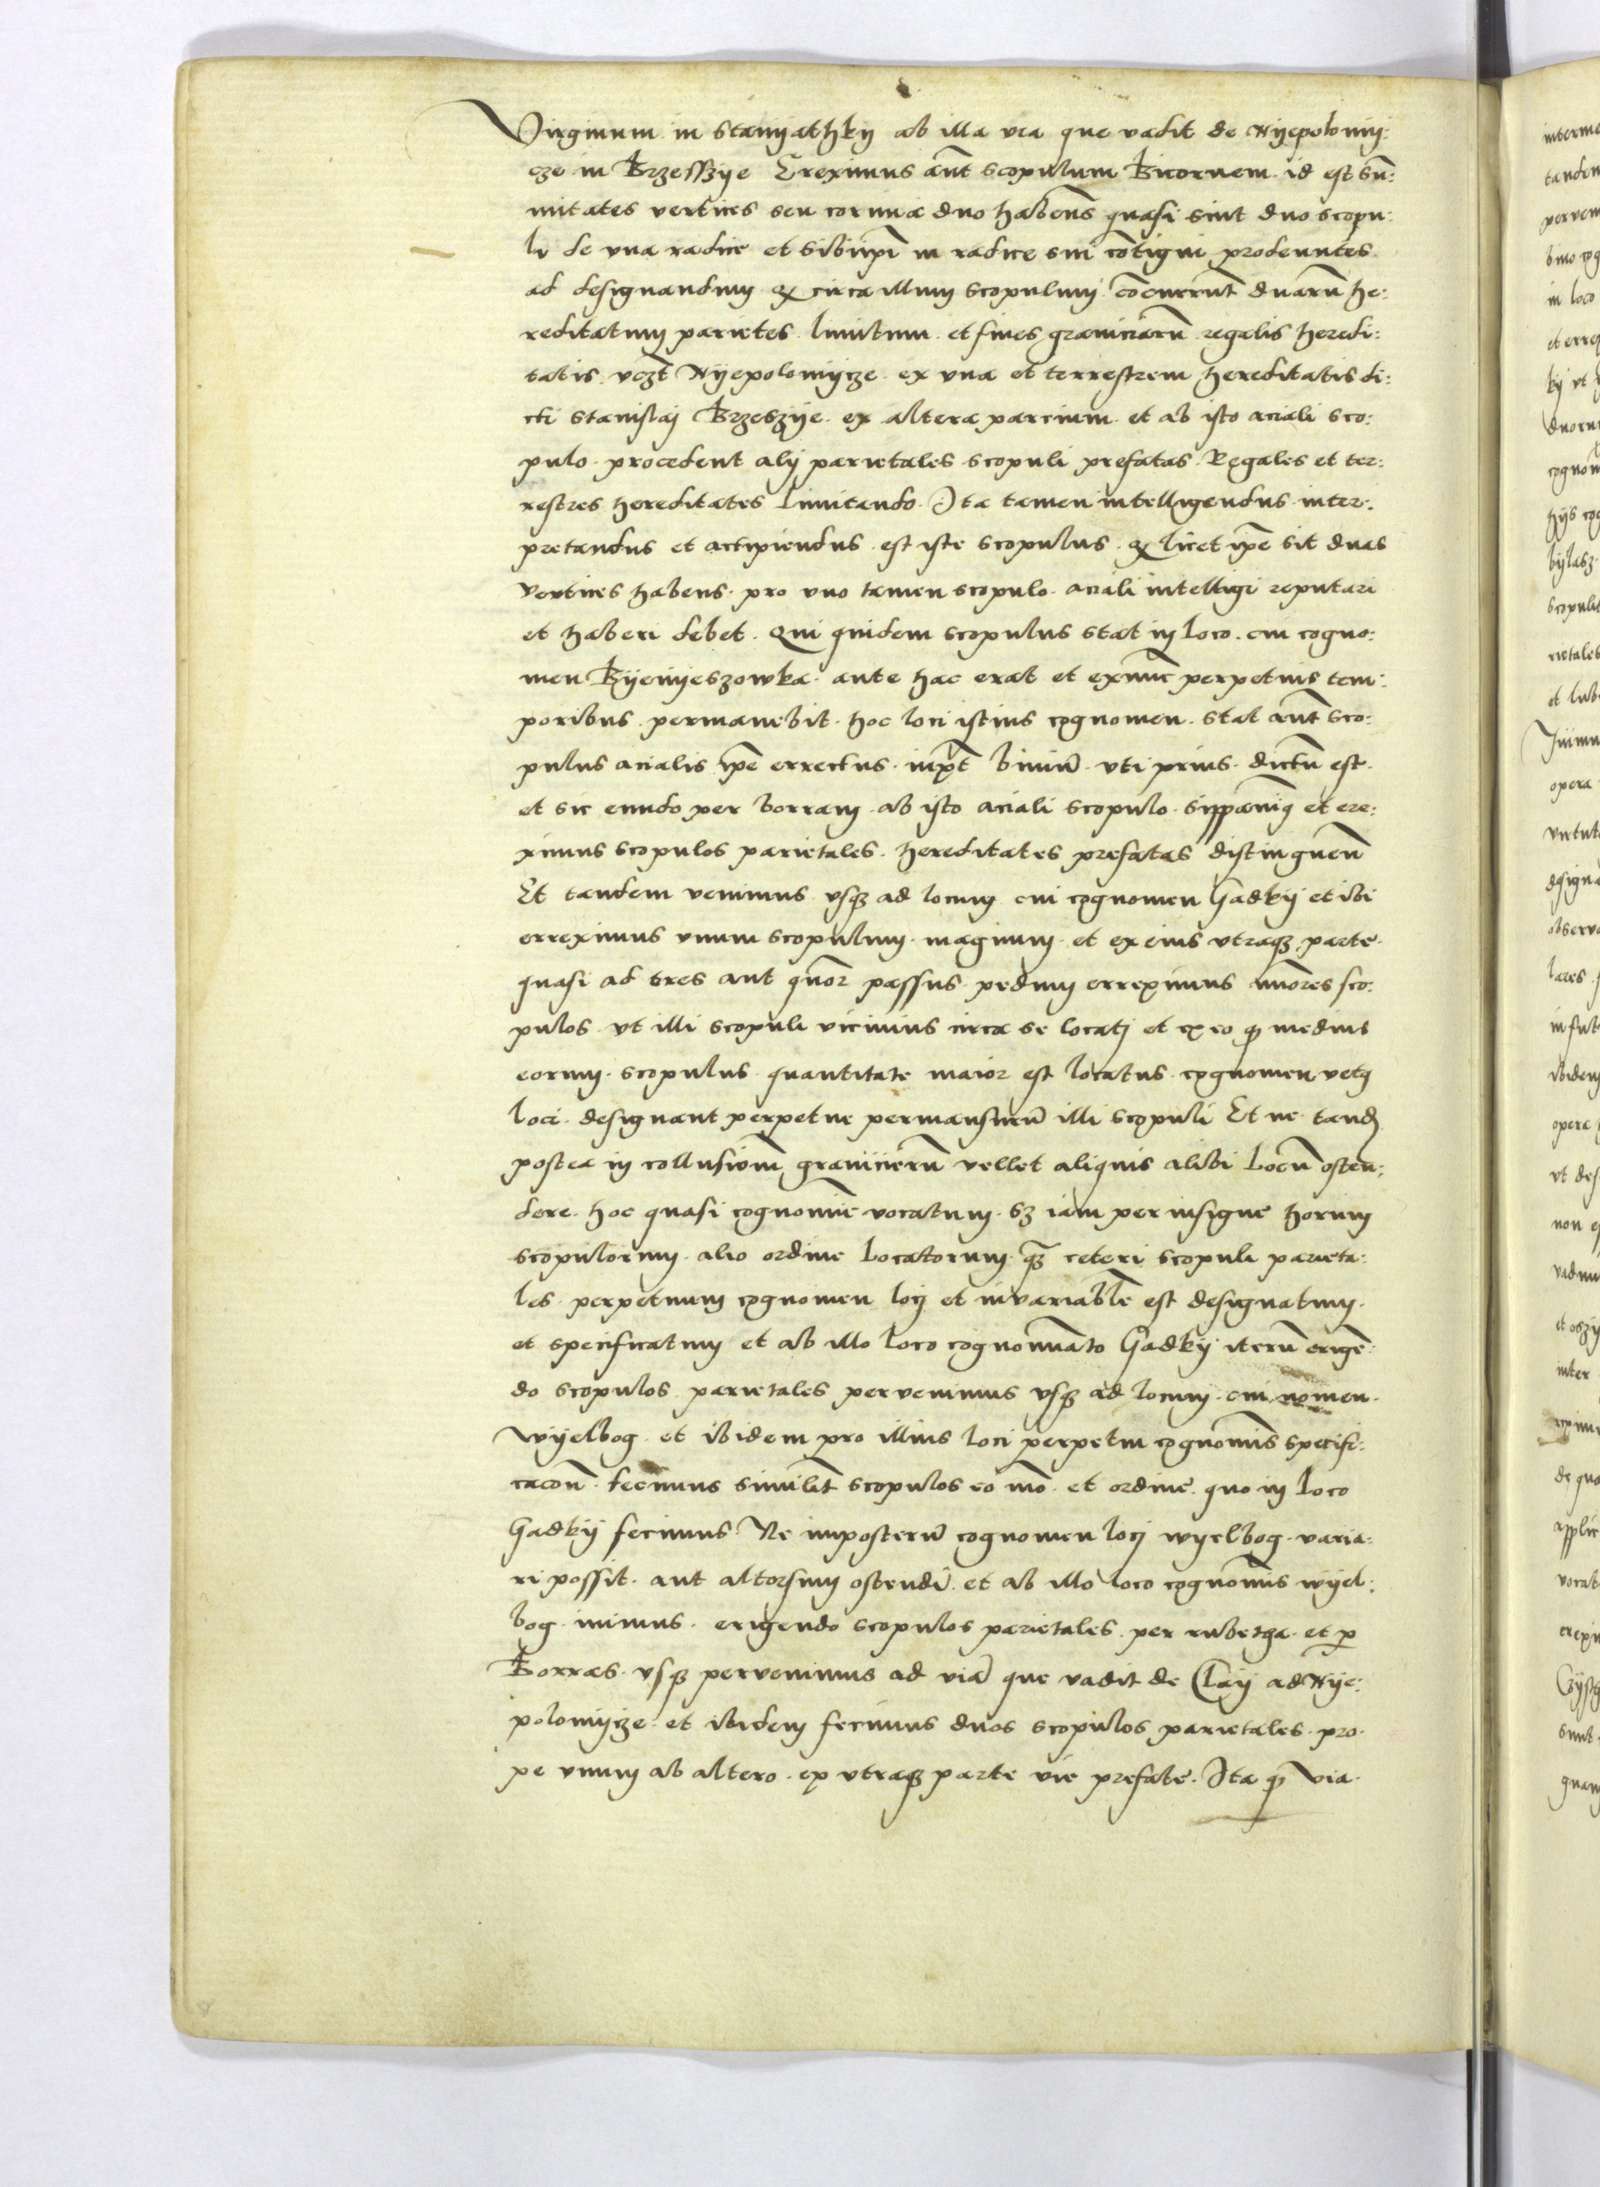 Virginum in Stanyathky ab illa via que vadit de Nyepolomy:
cze in Brzesszye Ereximus aūt scopulum Bicornem id est sū:
mitates vertices seu cornua duo habens quasi sint duo scopu:
li de una radice et sibiipī in radice sui cōtigui prodeuntes
ad designandum q circa illum scopulum cōcurrūt duarū he:
reditatum parietes limitum et fines graniciarū regalis heredi:
tatis vczt Nyepolomycze ex una et terrestrem hereditatis di:
cti Stanislaj Brzeszye ex altera parcium et ab isto aciali sco:
pulo procedent alij parietales scopuli prefatas Regales et ter:
restres hereditates limitando Ita tamen intelligendus inter:
pretandus et accipiendus est iste scopulus q licet ipe sit duas
vertices habens pro uno tamen scopulo aciali intelligi reputari
et haberi debet. Qui quidem scopulus stat in loco cui cogno:
men Byenyeszowka ante hac erat et exnūc perpetuis tem:
poribus permanebit hoc loci istius cognomen. stat aūt sco:
pulus acialis ipe errectus. binus uti prius dictū est
et sic eundo per borram ab isto aciali scopulo et ere:
ximus scopulos parietales hereditates prefatas distinguen̄
Et tandem venimus usq ad locum cui cognomen Gadky et ibi
erreximus unum scopulum magnum et ex eius utraq parte
quasi ad tres aut quor passus pedum erreximus mīores sco:
pulos ut illi scopuli vicinius circa se locatj et ex eo q medius
eorum scopulus quantitate maior est locatus cognomen
loci designant perpetue permansurū illi scopuli Et ne tand
postea in collusionē granicierū vellet aliquis alibi locū osten:
dere hoc quasi cognomīe vocatum sz iam per insigne horum
scopulorum alio ordine locattorum q ceteri scopuli parieta:
les perpetuum cognomen locj et invariable est designatum
et specificatum et ab illo loco cognomīato Gadky iterū erigē:
do scopulos parietales pervenimus usq ad locum cui nomen
Wyelbog et ibidem pro illius loci perpetui cognomīs specifi:
cacon fecimus similit scopulos eo mō et ordine quo in loco
Gadky fecimus Ne imposterū cognomen locj wyelbog varia:
ri possit aut altorsum ostendi et ab illo loco cognomīs wyel:
bog inimus erigendo scopulos parietales per rubetha et p
Borras usq pervenimus ad viā que vadit de Clay ad Nye:
polomycze et ibidem fecimus duos scopulos parietales pro
pe unum ab altero ex utraq parte vie prefate Ita q via